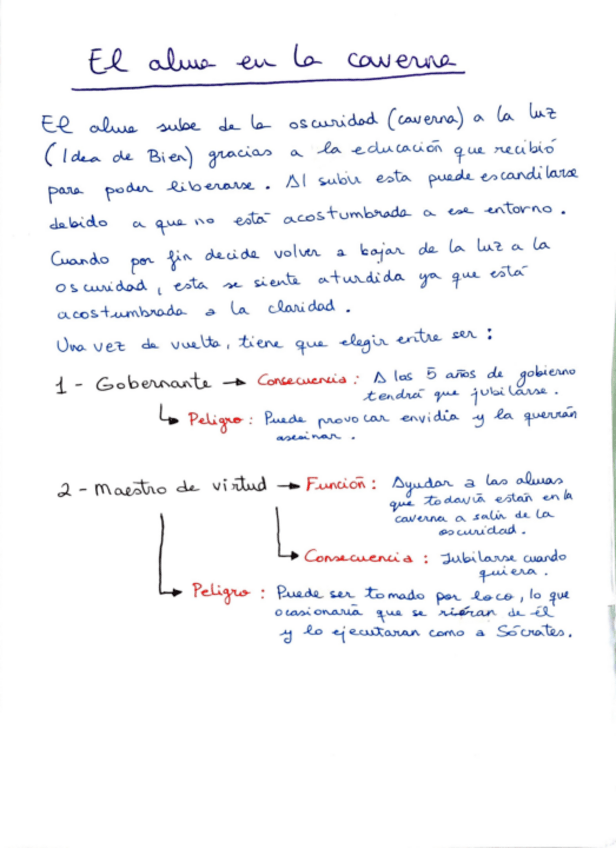 El alma en la caverna
El alma sube de la oscuridad (caverna) a la luz
(Idea de Bien) gracias a la educación que recibió
para poder liberarse. Al subir esta puede escandilarse
debido a que no está acostumbrada a ese entorno.
Cuando por fin decide volver a bajar de la luz a la
oscuridad, esta se siente aturdida ya que está
acostumbrada a la claridad.
Una vez de vuelta, tiene que elegir entre ser:
1 - Gobernante → Consecuencia: A los 5 años de gobierno
tendrá que jubilarse.
↳ Peligro: Puede provocar envidia y la querrán
asesinar.
2 - Maestro de virtud → Función: Ayudar a las almas
que todavía están en la
caverna a salir de la
oscuridad.
↳ Consecuencia: Jubilarse cuando
quiera.
↳ Peligro: Puede ser tomado por loco, lo que
ocasionaría que se rieran de él
y lo ejecutaran como a Sócrates.